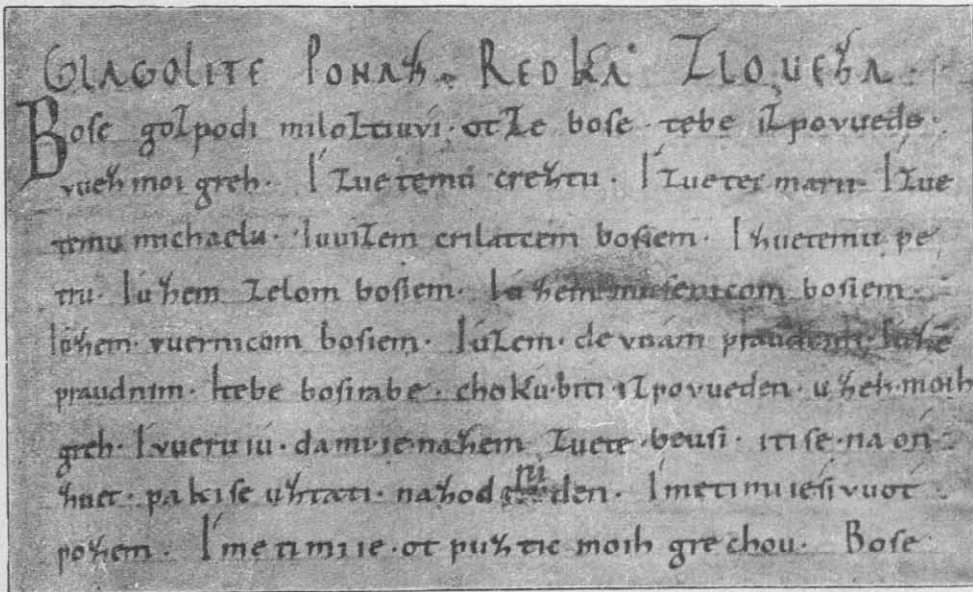 GLAGOLITE PONAZ. REDKA ZLOUEZA.
Bose gozpodi miloztiuvi. otze bose. tebe izpovuede.
vuez moi greh. I zuetemu creztu. I zuetei marii. I zue
temu michaelu. Iuuizem crilatcem bosiem. I zuetemu pe
tru. Iúzem zelom bosiem. Iúzem musenicom bosiem.
Iúzem. vuernicom bosiem. Iúzem. devuám praudnim. Iuzē
praudnim. Itebe bosirabe. chokú. biti izpovueden. uzeh. moih
greh. I vueruiú. da mi ie nazem zuete. beusi. iti se. na ón
zuet. paki se uztati. nazodni den. Imeti mi ie sivuot
pozem. Imeti mi ie. ot puztic moih grechou. Bose